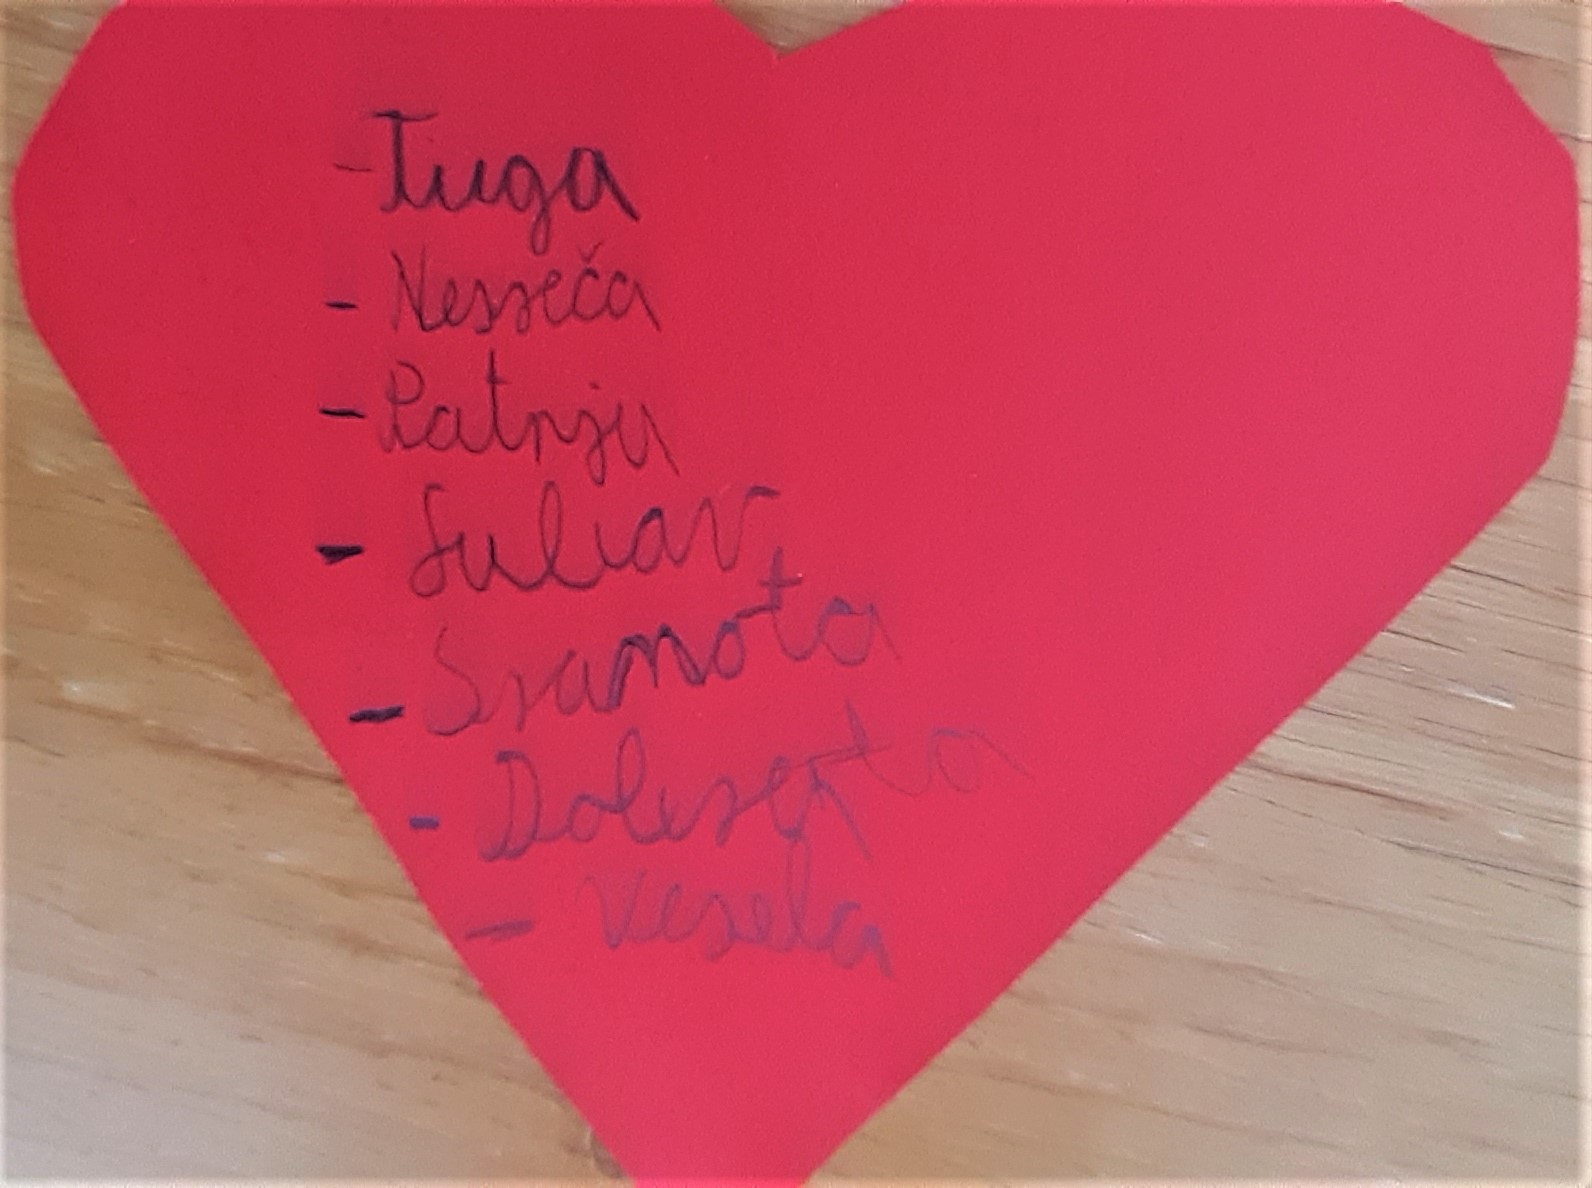 - Tuga
- Nesseča
- Patnja
- Suliav
- Sramota
- Doleserta
- Vesela